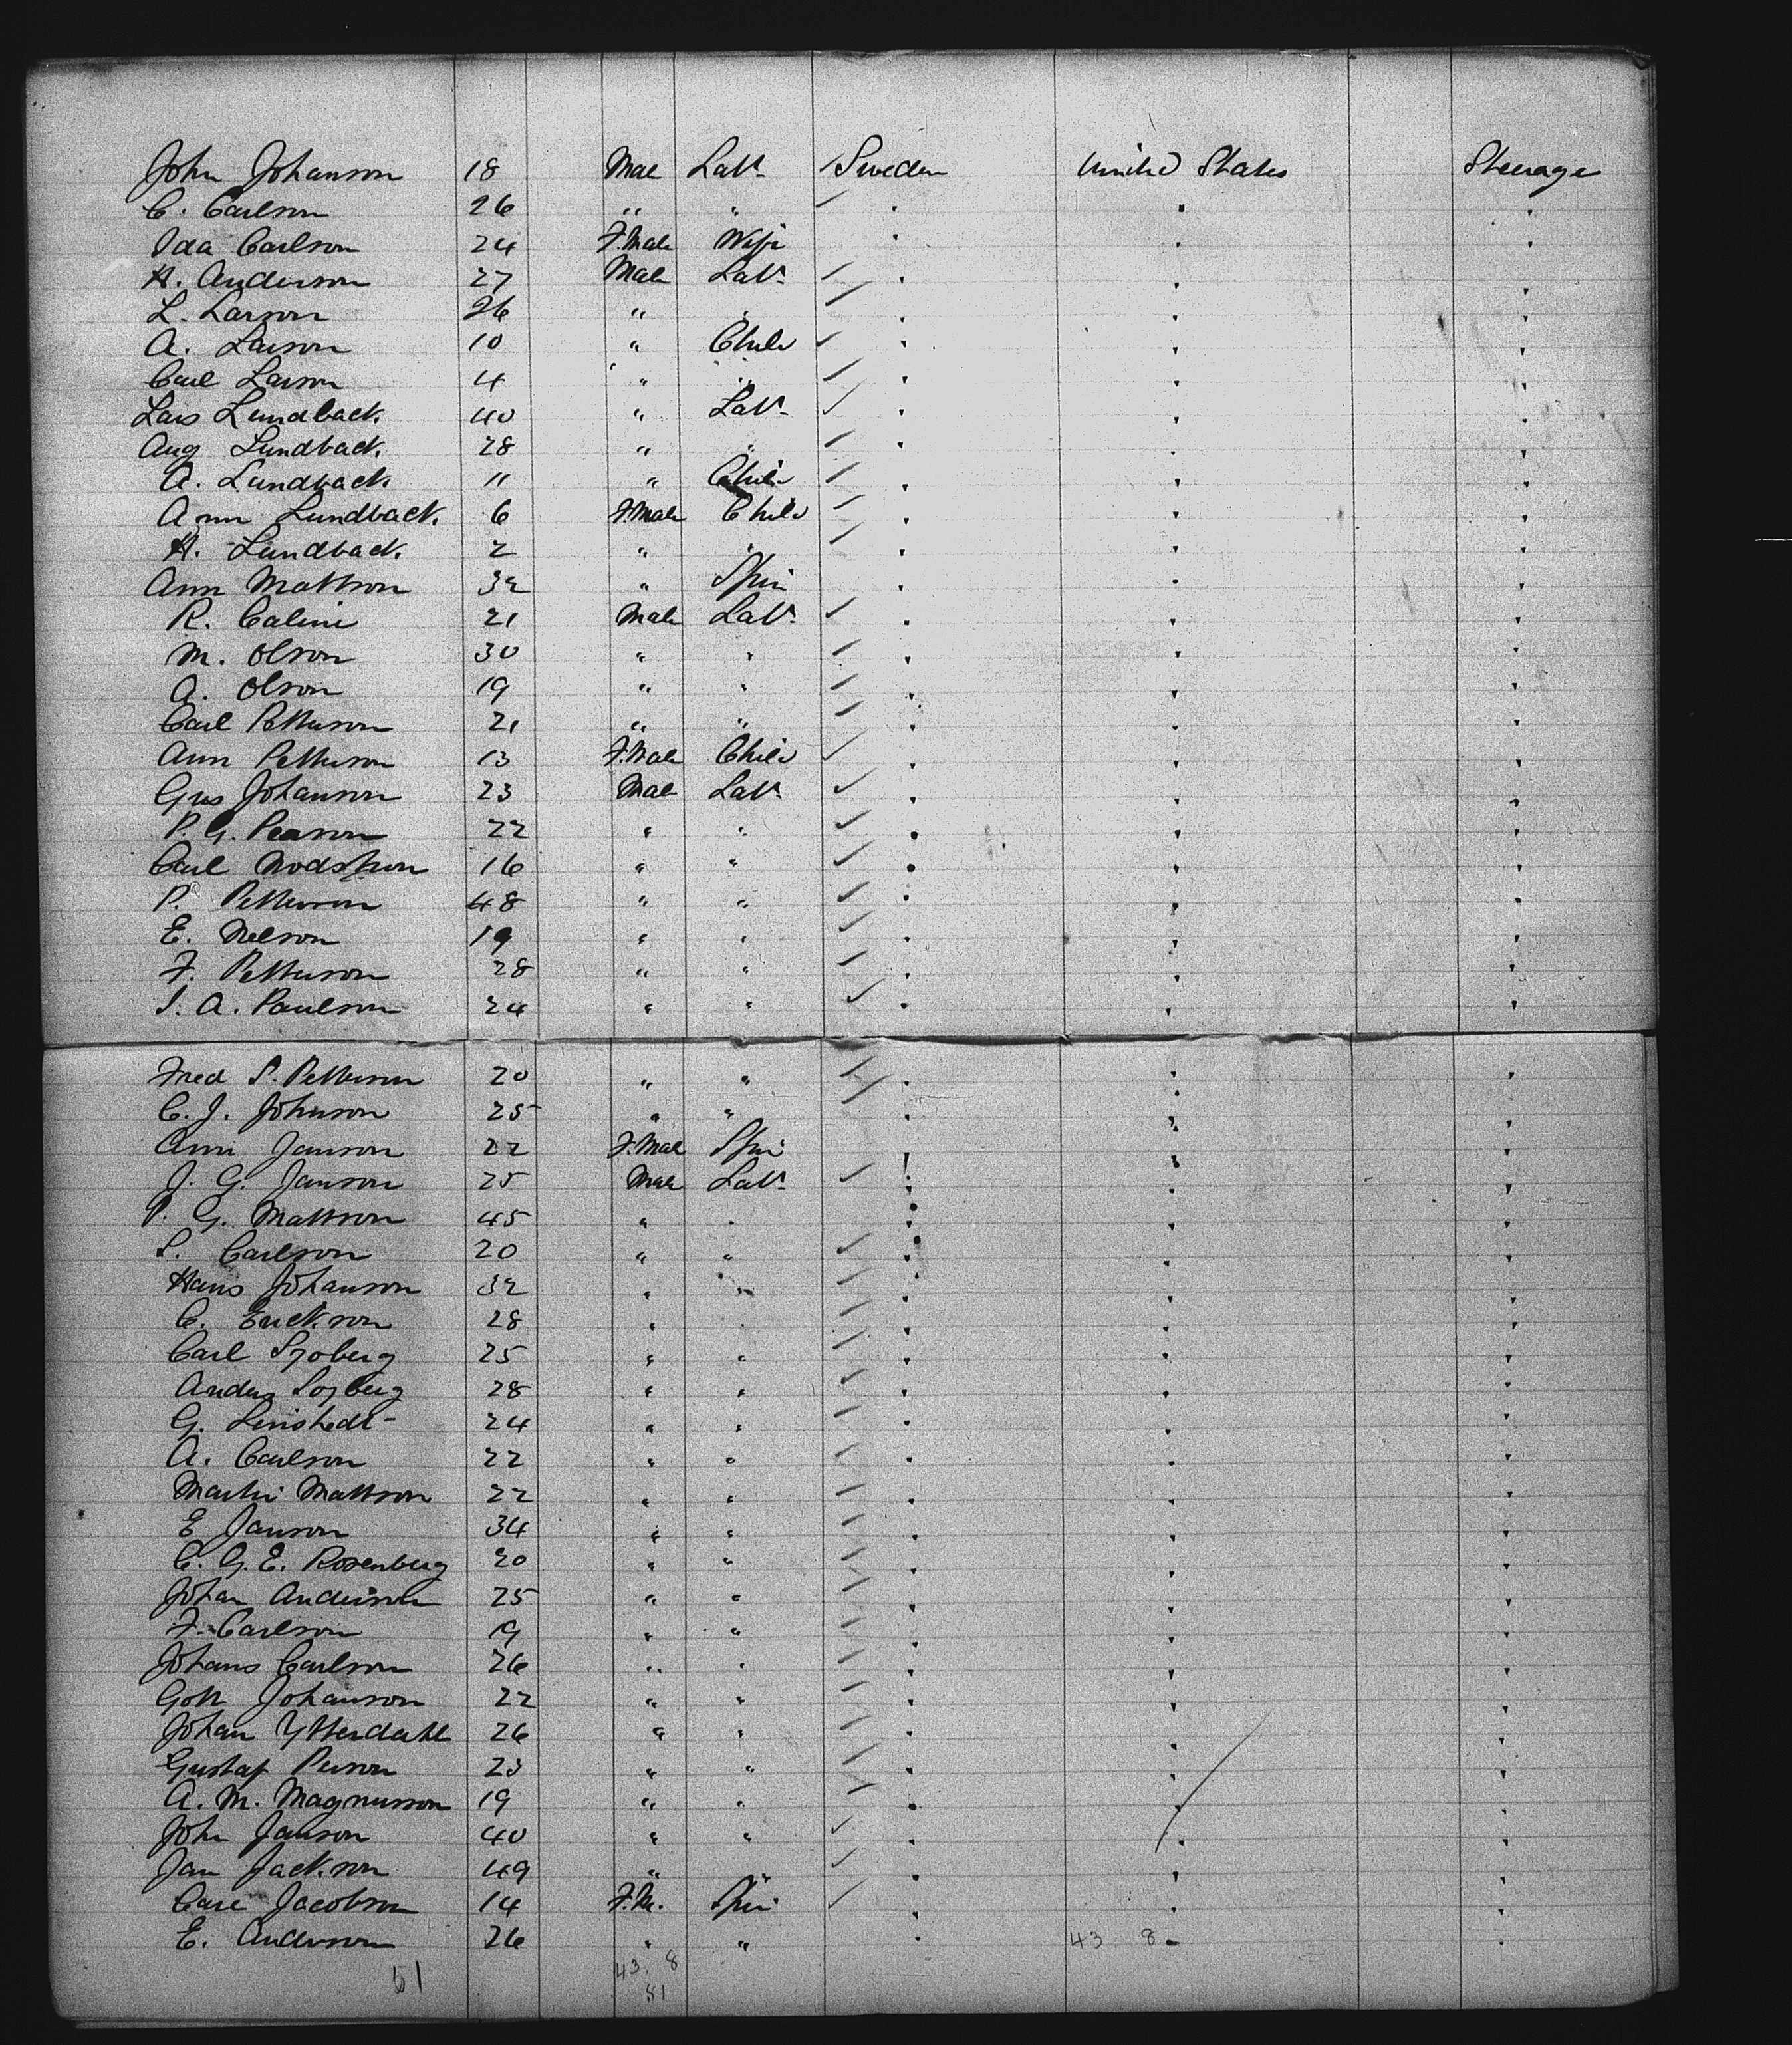 John Johanson 18 Male Labr Sweden United States Steerage
C. Carlson 26 " " " " "
Ida Carlson 24 F.Male Wife " " "
H. Anderson 27 Male Labr " " "
L. Larson 26 " " " " "
A. Larson 10 " Child " " "
Carl Larson 4 " " " " "
Lars Lundback 40 " Labr " " "
Aug Lundback 28 " " " " "
A. Lundback 11 " Child " " "
Ann Lundback 6 F.Male Child " " "
H. Lundback 2 " " " " "
Ann Mattson 32 " Spin " " "
R. Calini 21 Male Labr " " "
M. Olson 30 " " " " "
A. Olson 19 " " " " "
Carl Petterson 21 " " " " "
Ann Petterson 13 F.Male Child " " "
Gus Johanson 23 Male Labr " " "
P. G. Pearson 22 " " " " "
Carl Nodstrom 16 " " " " "
P. Petterson 48 " " " " "
E. Nelson 19 " " " " "
F. Petterson 28 " " " " "
S. A. Paulson 24 " " " " "
Fred S. Petterson 20 " " " " "
C. J. Johnson 25 " " " " "
Ann Janson 22 F.Male Spin " " "
J. G. Janson 25 Male Labr " " "
P. G. Mattson 45 " " " " "
S. Carlson 20 " " " " "
Hans Johanson 32 " " " " "
C. Erickson 28 " " " " "
Carl Sjoberg 25 " " " " "
Anders Sojberg 28 " " " " "
G. Linstedt 24 " " " " "
A. Carlson 22 " " " " "
Martin Mattson 22 " " " " "
E Janson 34 " " " " "
C. G. E. Rosenberg 20 " " " " "
Johan Anderson 25 " " " " "
F. Carlson 19 " " " " "
Johans Carlson 26 " " " " "
Gott Johanson 22 " " " " "
Johan Ytterdahl 26 " " " " "
Gustaf Person 23 " " " " "
A. M. Magnusson 19 " " " " "
John Janson 40 " " " " "
Jan Jackson 49 " " " " "
Carl Jacobson 14 F.M. Spin " " "
E. Anderson 26 " " " 43 8 " "
51 43. 8
51